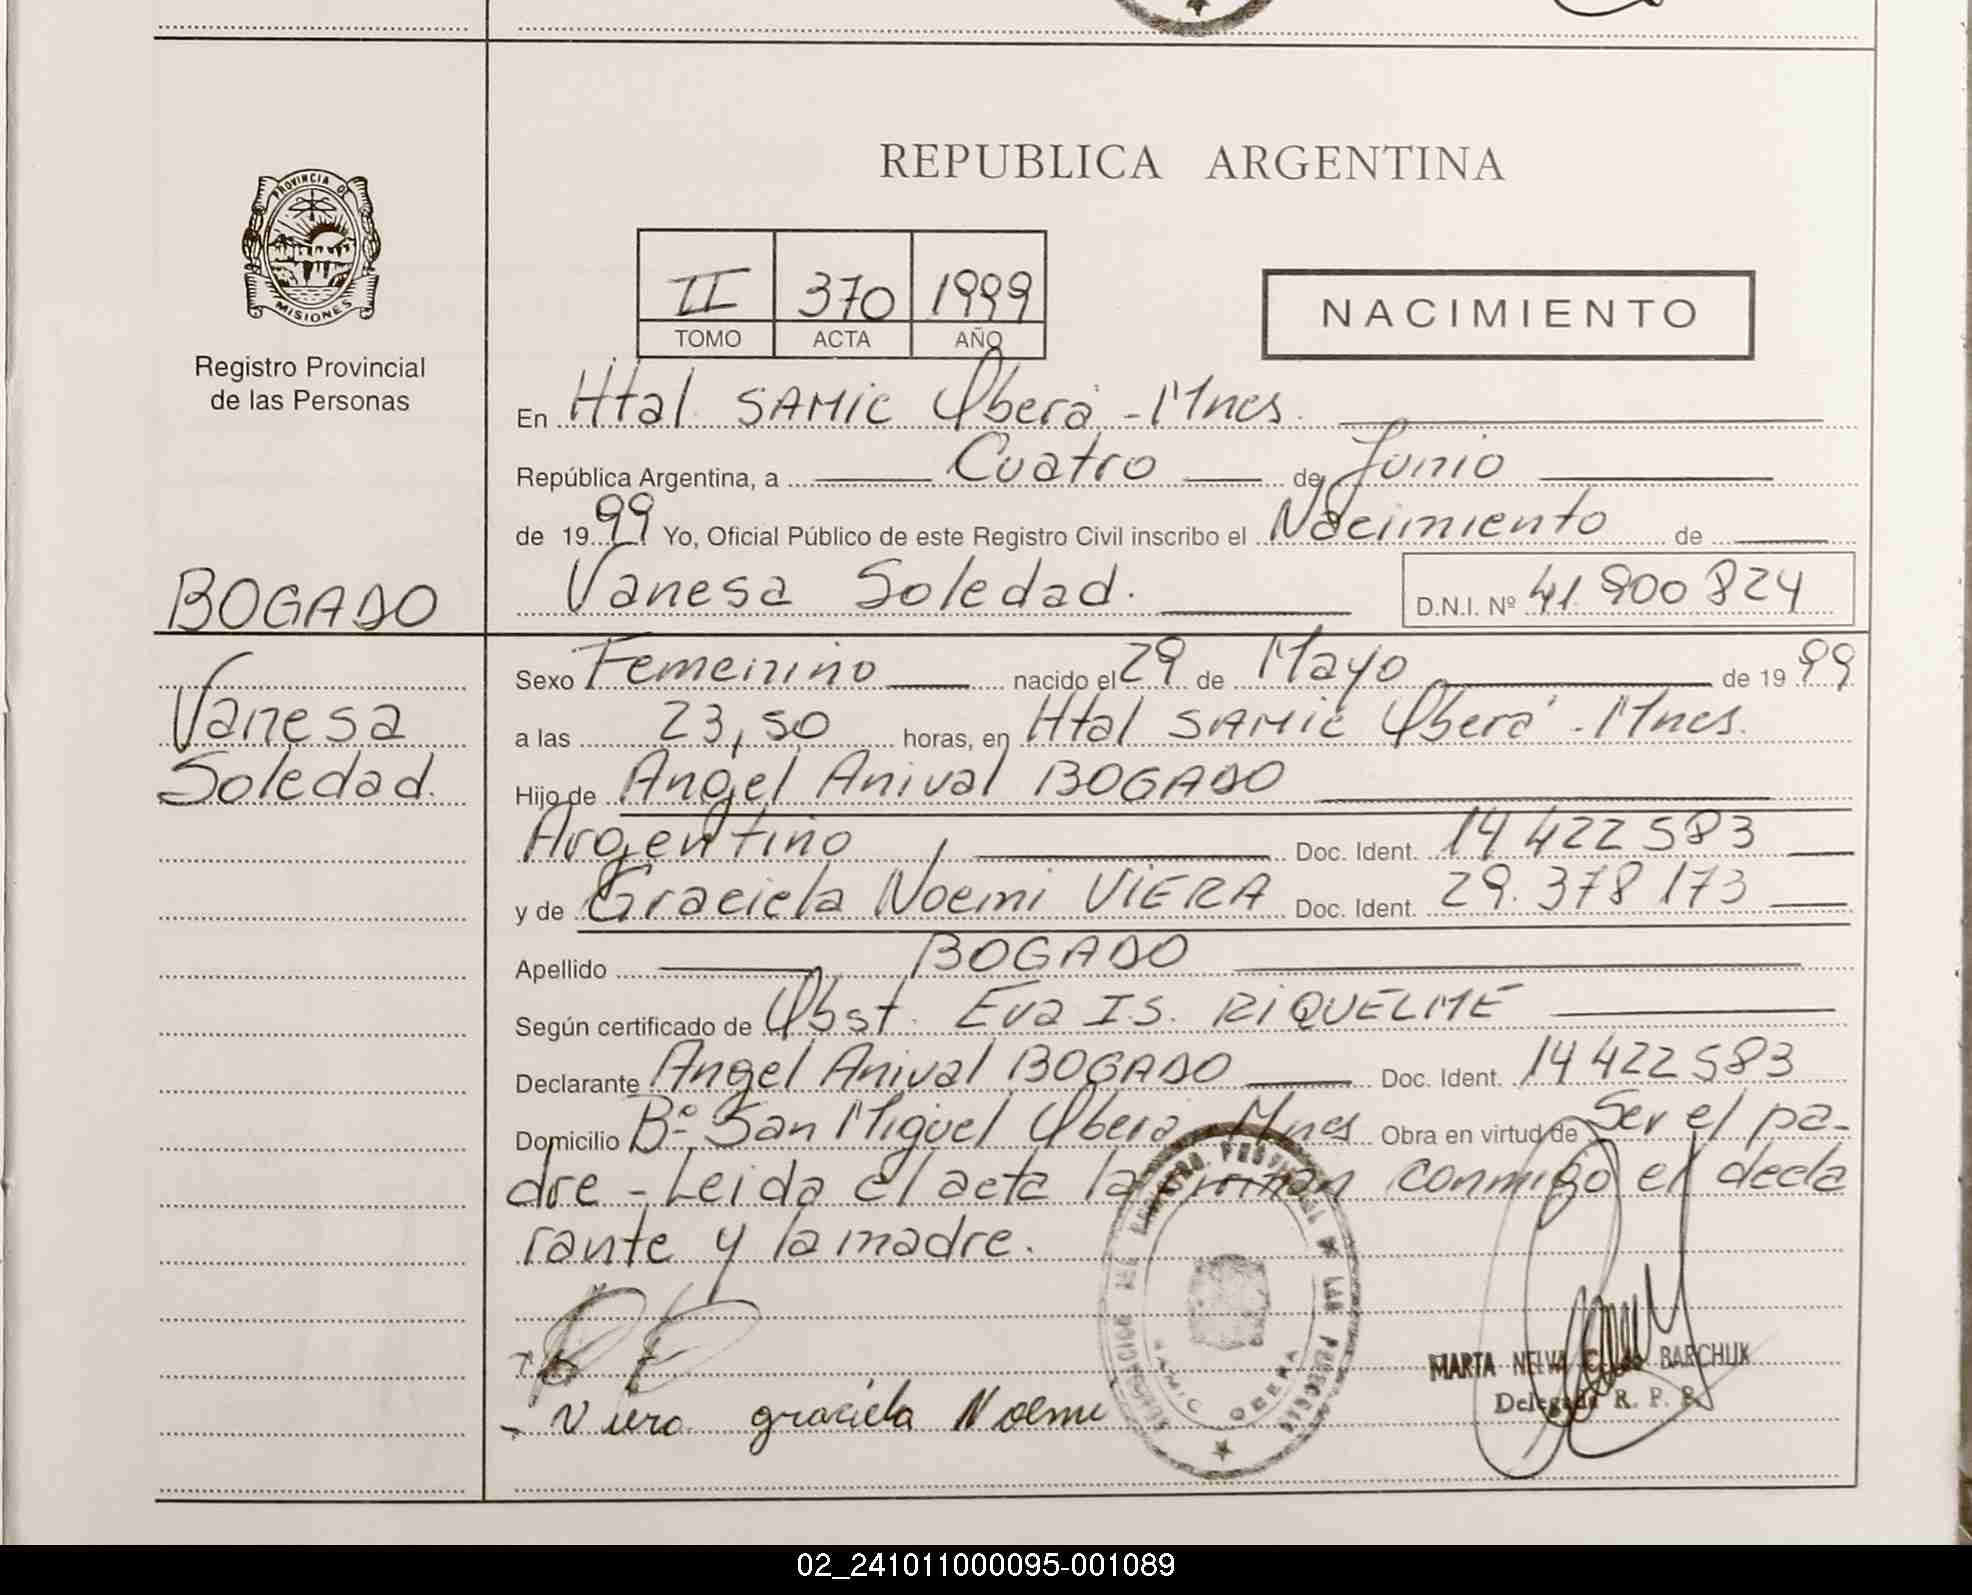 PROVINCIA DE
MISIONES
Registro Provincial
de las Personas
REPUBLICA ARGENTINA
II 370 1999
TOMO ACTA AÑO
NACIMIENTO
En Htal SAMIC Oberá - Mnes.
República Argentina, a Cuatro de Junio
de 1999 Yo, Oficial Público de este Registro Civil inscribo el Nacimiento de
BOGADO
Vanesa Soledad.
D.N.I. Nº 41 900 824
Vanesa
Soledad.
Sexo Femenino nacido el 29 de Mayo de 1999
a las 23,50 horas, en Htal SAMIC Oberá - Mnes.
Hijo de Angel Anival BOGADO
Argentino Doc. Ident. 14 422 583
y de Graciela Noemi VIERA Doc. Ident. 29.378 173
Apellido BOGADO
Según certificado de Obst. Eva IS. RIQUELME
Declarante Angel Anival BOGADO Doc. Ident. 14 422 583
Domicilio Bº San Miguel Oberá Mnes Obra en virtud de Ser el pa-
dre - Leida el acta la firman conmigo el decla
rante y la madre.
MARTA NELVA BARCHUK
Delegada R. P. P.
- Viera graciela Noemi
SAMIC OBERA
02_241011000095-001089